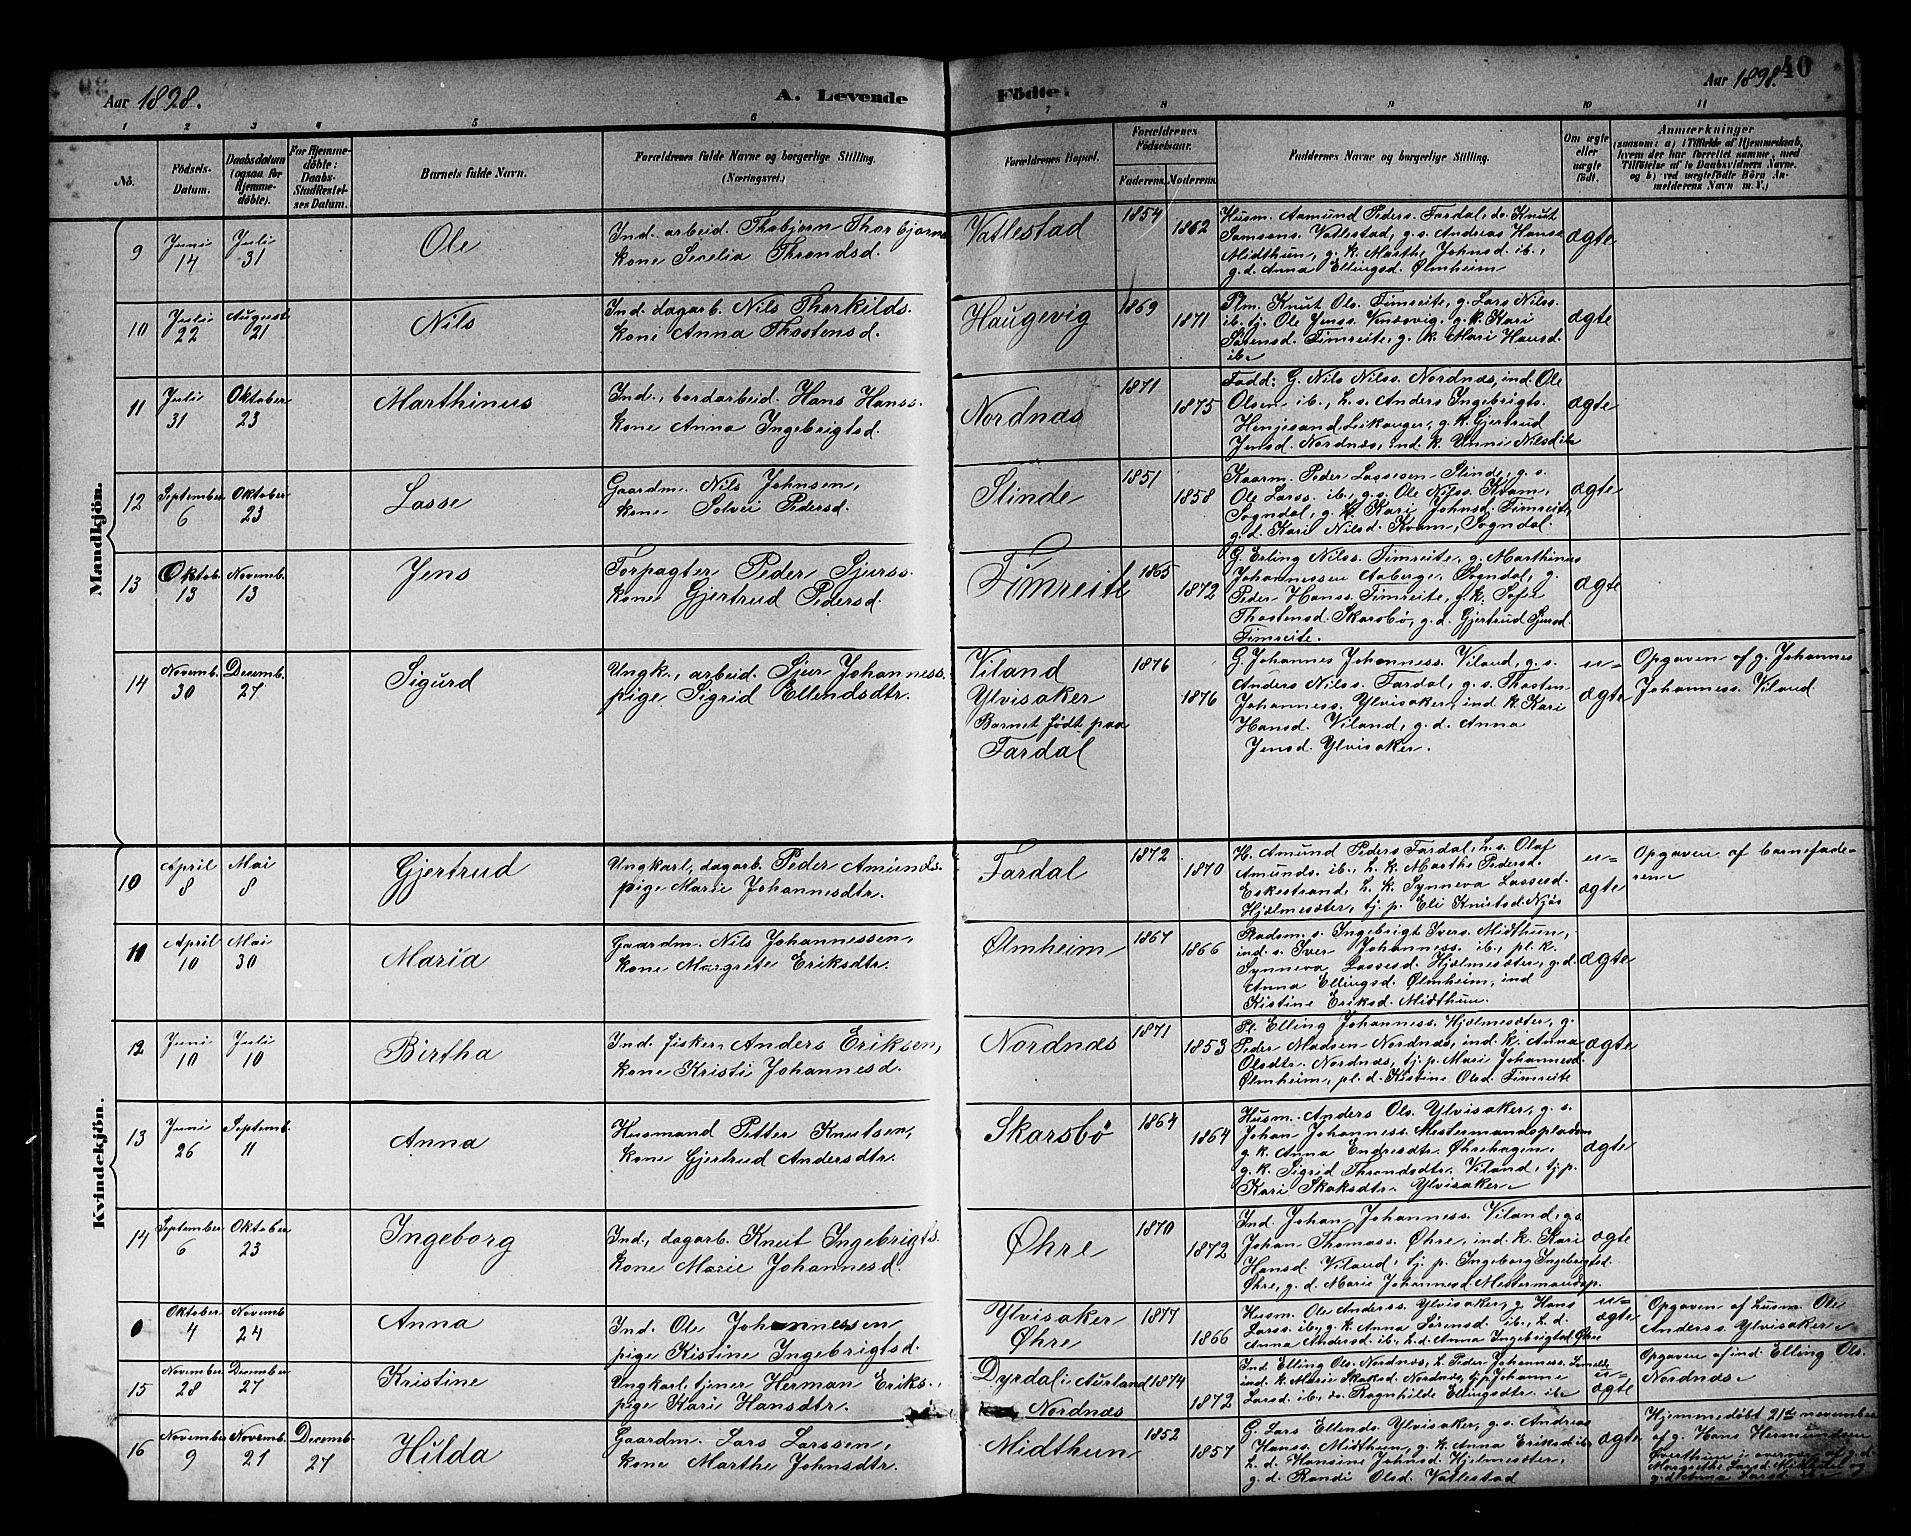 Aar 1898.
A. Levende Födte.
Aar 1898. 40
1 2 3 4 5 6 7 8 9 10 11
No.
Födsels-
Datum.
Daabsdatum
(ogsaa for
Hjemme-
döbte).
For Hjemme-
döbte:
Daabs-
Stadfæstel-
ses Datum.
Barnets fulde Navn.
Forældrenes fulde Navne og borgerlige Stilling.
(Næringsvei.)
Forældrenes Bopæl.
Forældrenes
Födselsaar.
Faderens. Moderens.
Faddernes Navne og borgerlige Stilling.
Om ægte
eller
uægte
födt.
Anmærkninger
(saasom: a) i Tilfælde af Hjemmedaab,
hvem der har forrettet samme, med
Tilföielse af to Daabsvidners Navne,
og b) ved uægtefödte Börn An-
melderens Navn m. V.)
Mandkjön.
9
Juni
14
Juli
31
Ole
Ind. arbeid. Thobjørn Thorbjørns
kone Secelia Throndsd.
Vatlestad
1854
1862
Husm. Aamund Peders. Fardal, do. Knut
Samsons. Vatlestad, g. s. Andreas Hanss.
Midthun, g. k. Marthe Johnsd. ib.,
g. d. Anna Ellingsd. Ølmheim
ægte
10
Juli
22
August
21
Nils
Ind. dagarb. Nils Thorkilds.
kone Anna Thostensd.
Haugevig
1869
1871
Plm. Knut Ols. Fimreite, g. Lars Nilss.
ib. tj. Ole Jenss. g. k. Kari
Fimreite, g. k. Mari Hansd.
ib.
ægte
11
Juli
31
Oktober
23
Marthinus
Ind., bordarbeid. Hans Hanss.
kone Anna Ingebrigtsd.
Nordnæs
1871
1875
Fadd: G. Nils Nilss. Nordnæs, ind. Ole
Olsen ib., h. s. Anders Ingebrigts.
Henjesand Leikanger, g. k. Gjertrud
Jensd. Nordnæs, ind. k. Unni Nilsd ib
ægte
12
September
6
Oktober
23
Lasse
Gaardm. Nils Johnsen,
kone Solvei Pedersd.
Slinde
1851
1858
Kaarm. Peder Lassesen Slinde, g. s.
Ole Larss. ib., g. s. Ole Nilss. Kvam,
Sogndal, g. k. Kari Johnsd. Fimreite,
g. d. Kari Nilsd. Kvam, Sogndal.
ægte
13
Oktob.
13
Novemb.
13
Jens
Forpagter Peder Sjurss.
kone Gjertrud Pedersd.
Fimreite
1865
1872
G. Erling Nilss. Fimreite, g. Marthines
Johannessen Aaberge, Sogndal, g.
Peder Hanss. Fimreite, g. k. Sofie
Thostensd. Skarsbø, g. d. Gjertrud Sjursd.
Fimreite.
ægte
14
Novemb.
30
Decemb.
27
Sigurd
Ungk., arbeid. Sjur Johanness.
pige Sigrid Ellendsdtr.
Viland
Ylvisaker
Barnet født paa
Fardal
1876
1876
G. Johannes Johanness. Viland, g. s.
Anders Nilss. Fardal, g. s. Thosten
Johanness. Ylvisaker, ind. k. Kari
Hansd. Viland, g. d. Anna
Jensd. Ylvisaker.
u=
ægte
Opgaven af g. Johannes
Johanness. Viland
Kvindekjön.
10
April
8
Mai
8
Gjertrud
Ungkarl, dagarb. Peder Amunds.
pige Marie Johannesdtr.
Fardal
1872
1870
H. Amund Peders Fardal, h. s. Olaf
Amunds. ib., h. k. Marthe Pedersd.
Eskestrand, h. k. Synneva Lassesd.
Hjelmesæter, tj. p. Eli Knutsd. Njøs
u=
ægte
Opgaven af barnefade-
ren
11
April
10
Mai
30
Maria
Gaardm. Nils Johannessen,
kone Margrete Eriksdtr.
Ølmheim
1867
1866
Radsm. s. Ingebrigt Ivers. Midthun,
ind. s. Iver Johanness. ib., pl. k.
Synneva Lassesd. Hjelmesæter, g. d.
Anna Ellingsd. Ølmheim, ind
Kistine Eriksd. Midthun.
ægte
12
Juni
10
Juli
10
Birtha
Ind. fisker Anders Eriksen,
kone Kristi Johannesd.
Nordnæs
1871
1853
Pl. Elling Johanness. Hjelmesæter, g.
Peder Madsen Nordnæs, ind. k. Anna
Olsdtr. Nordnæs, tj. p. Mari Johannesd.
Ølmheim, pl. d. Kistine Olsd. Fimreite
ægte
13
Juni
26
Septemb.
11
Anna
Husmand Petter Knutsen,
kone Gjertrud Andersdtr.
Skarsbø
1864
1864
Husm. Anders Ols. Ylvisaker, g. s.
Johan Johanness. Mestermandspladsen
g. k. Anna Endresdtr. Øhrehagen,
g. k. Sigrid Throndsdtr. Viland, tj. p.
Kari Skaksdtr. Ylvisaker
ægte
14
September
6
Oktober
23
Ingeborg
Ind., dagarb. Knut Ingebrigts.
kone Marie Johannesd.
Øhre
1870
1872
Ind. Johan Johanness. Viland, g. s.
Johan Thomass. Øhre, ind. k. Kari
Hansd. Viland, tj. p. Ingeborg Ingebrigtsd.
Øhre, g. d. Marie Johannesd. Mestermandsp.
ægte
Oktober
4
Novemb
24
Anna
Ind. Ole Johannessen
pige Kistine Ingebrigtsd.
Ylvisaker
Øhre
1877
1866
Husm. Ole Anderss. Ylvisaker, g. Hans
Larss. ib., g. k. Anna Sørensd. ib., h. d.
Anna Andersd. ib., h. d. Anna Ingebrigtsd. Øhre
u=
ægte
Opgaven af husm. Ole
Anders s. Ylvisaker
15
November
28
December
27
Kristine
Ungkarl tjener Herman Eriks.,
pige Kari Hansdtr.
Dyrdal i Aurland
Nordnæs
1874
1872
Ind. Elling Ols. Nordnæs, h. Peder Johanness.
ind. k. Marie Skaksd. Nordnæs, tj. p. Johanne
Larsd. ib., do. Ragnhilde Ellingsdtr. ib.
u=
ægte
Opgaven af ind. Elling Ols.
Nordnæs
16
November
9
Novemb.
21
Decemb.
27
Hilda
Gaardm. Lars Larssen,
kone Marthe Johnsdtr.
Midthun
1852
1857
G. Lars Ellends. Ylvisaker, g. s. Andreas
Hanss. Midthun, g. k. Anna Eriksd ib.
h. d. Hansine Johnsd. Hjelmesæter,
g. d. Randi Olsd. Vatlestad
ægte
Hjemmedøbt 21de november
af g. Hans Hermundsen
i overvær af g. d.
Margrethe Larsd. og
g. d. Anna Larsd.